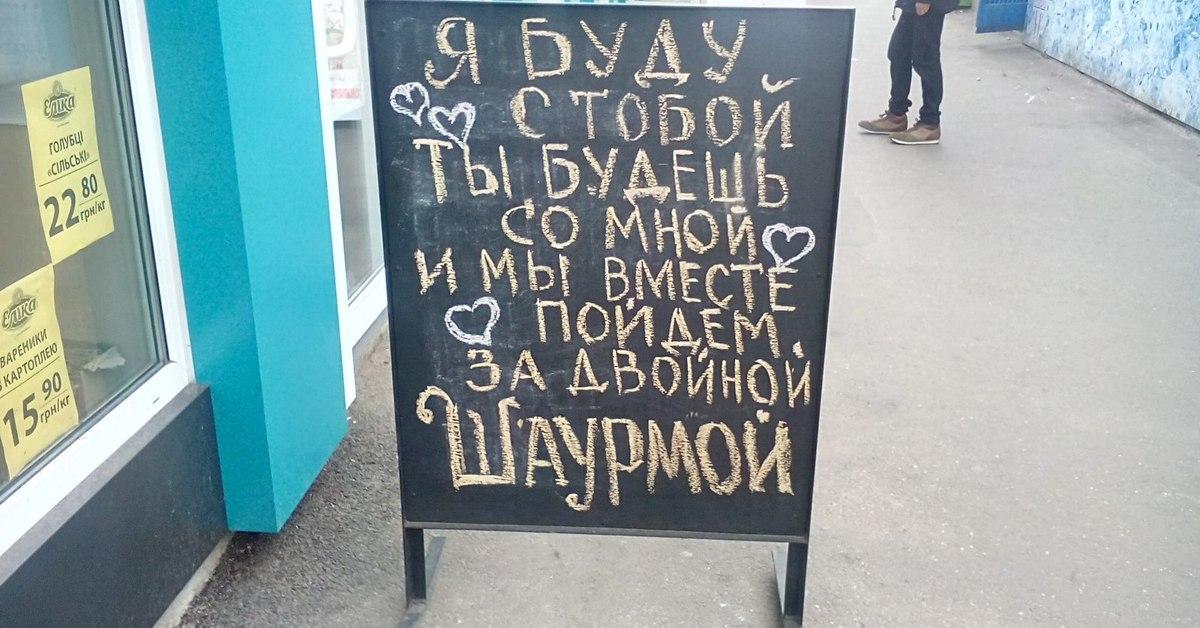 Я БУДУ
С ТОБОЙ
ТЫ БУДЕШЬ
СО МНОЙ
И МЫ ВМЕСТЕ
ПОЙДЕМ
ЗА ДВОЙНОЙ
ШАУРМОЙ
Елка
ГОЛУБЦІ
«СІЛЬСЬКІ»
22 80
грн/кг
Елка
ВАРЕНИКИ
З КАРТОПЛЕЮ
15 90
грн/кг